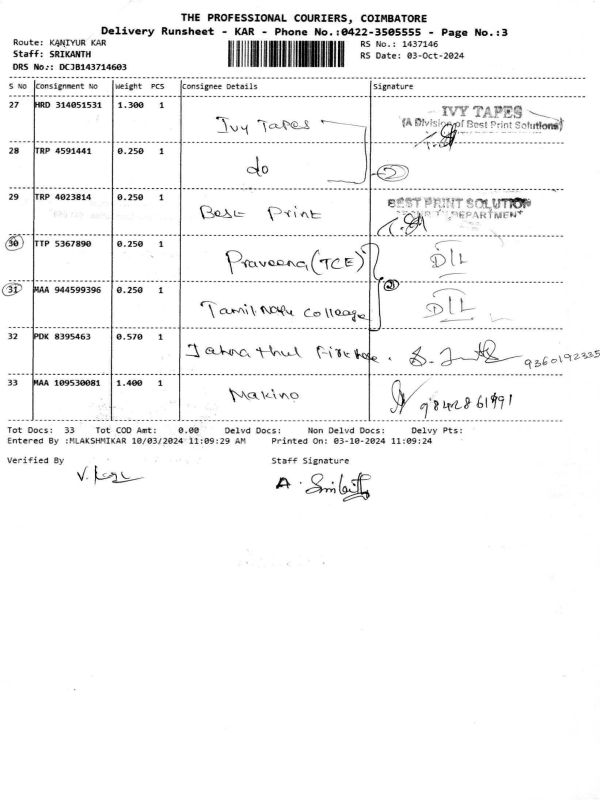 THE PROFESSIONAL COURIERS, COIMBATORE
Delivery Runsheet - KAR - Phone No.:0422-3505555 - Page No.:3
Route: KANIYUR KAR RS No.: 1437146
Staff: SRIKANTH RS Date: 03-Oct-2024
DRS No.: DCJB143714603
S No Consignment No Weight PCS Consignee Details Signature
27 HRD 314051531 1.300 1 Ivy Tapes IVY TAPES
(A Division of Best Print Solutions)
28 TRP 4591441 0.250 1 do
29 TRP 4023814 0.250 1 Best Print BEST PRINT SOLUTION
DEPARTMENT
30 TTP 5367890 0.250 1 Praveena (TCE) DIL
31 MAA 944599396 0.250 1 Tamilnadu College DIL
32 PDK 8395463 0.570 1 9360192335
33 MAA 109530081 1.400 1 Makino 9842861991
Tot Docs: 33 Tot COD Amt: 0.00 Delvd Docs: Non Delvd Docs: Delvy Pts:
Entered By :MLAKSHMIKAR 10/03/2024 11:09:29 AM Printed On: 03-10-2024 11:09:24
Verified By Staff Signature